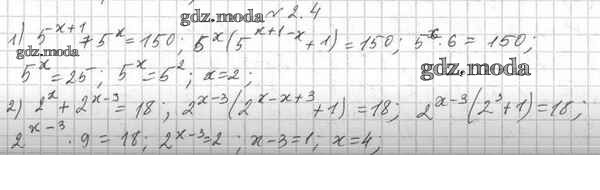 gdz.moda № 2.4
1) 5^{x+1} + 5^x = 150; 5^x(5^{x+1-x}+1) = 150; 5^x · 6 = 150;
gdz.moda
5^x = 25; 5^x = 5^2; x = 2;
gdz.moda
2) 2^x + 2^{x-3} = 18; 2^{x-3}(2^{x-x+3}+1) = 18; 2^{x-3}(2^3+1) = 18;
2^{x-3} · 9 = 18; 2^{x-3} = 2; x-3 = 1; x = 4;